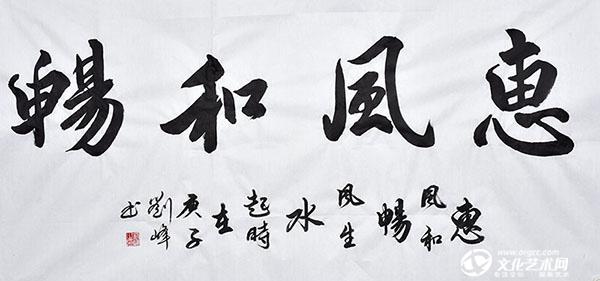 惠風和暢
惠風和暢風生水起時在庚子劉峰书
www.orgcc.com
文化艺术网